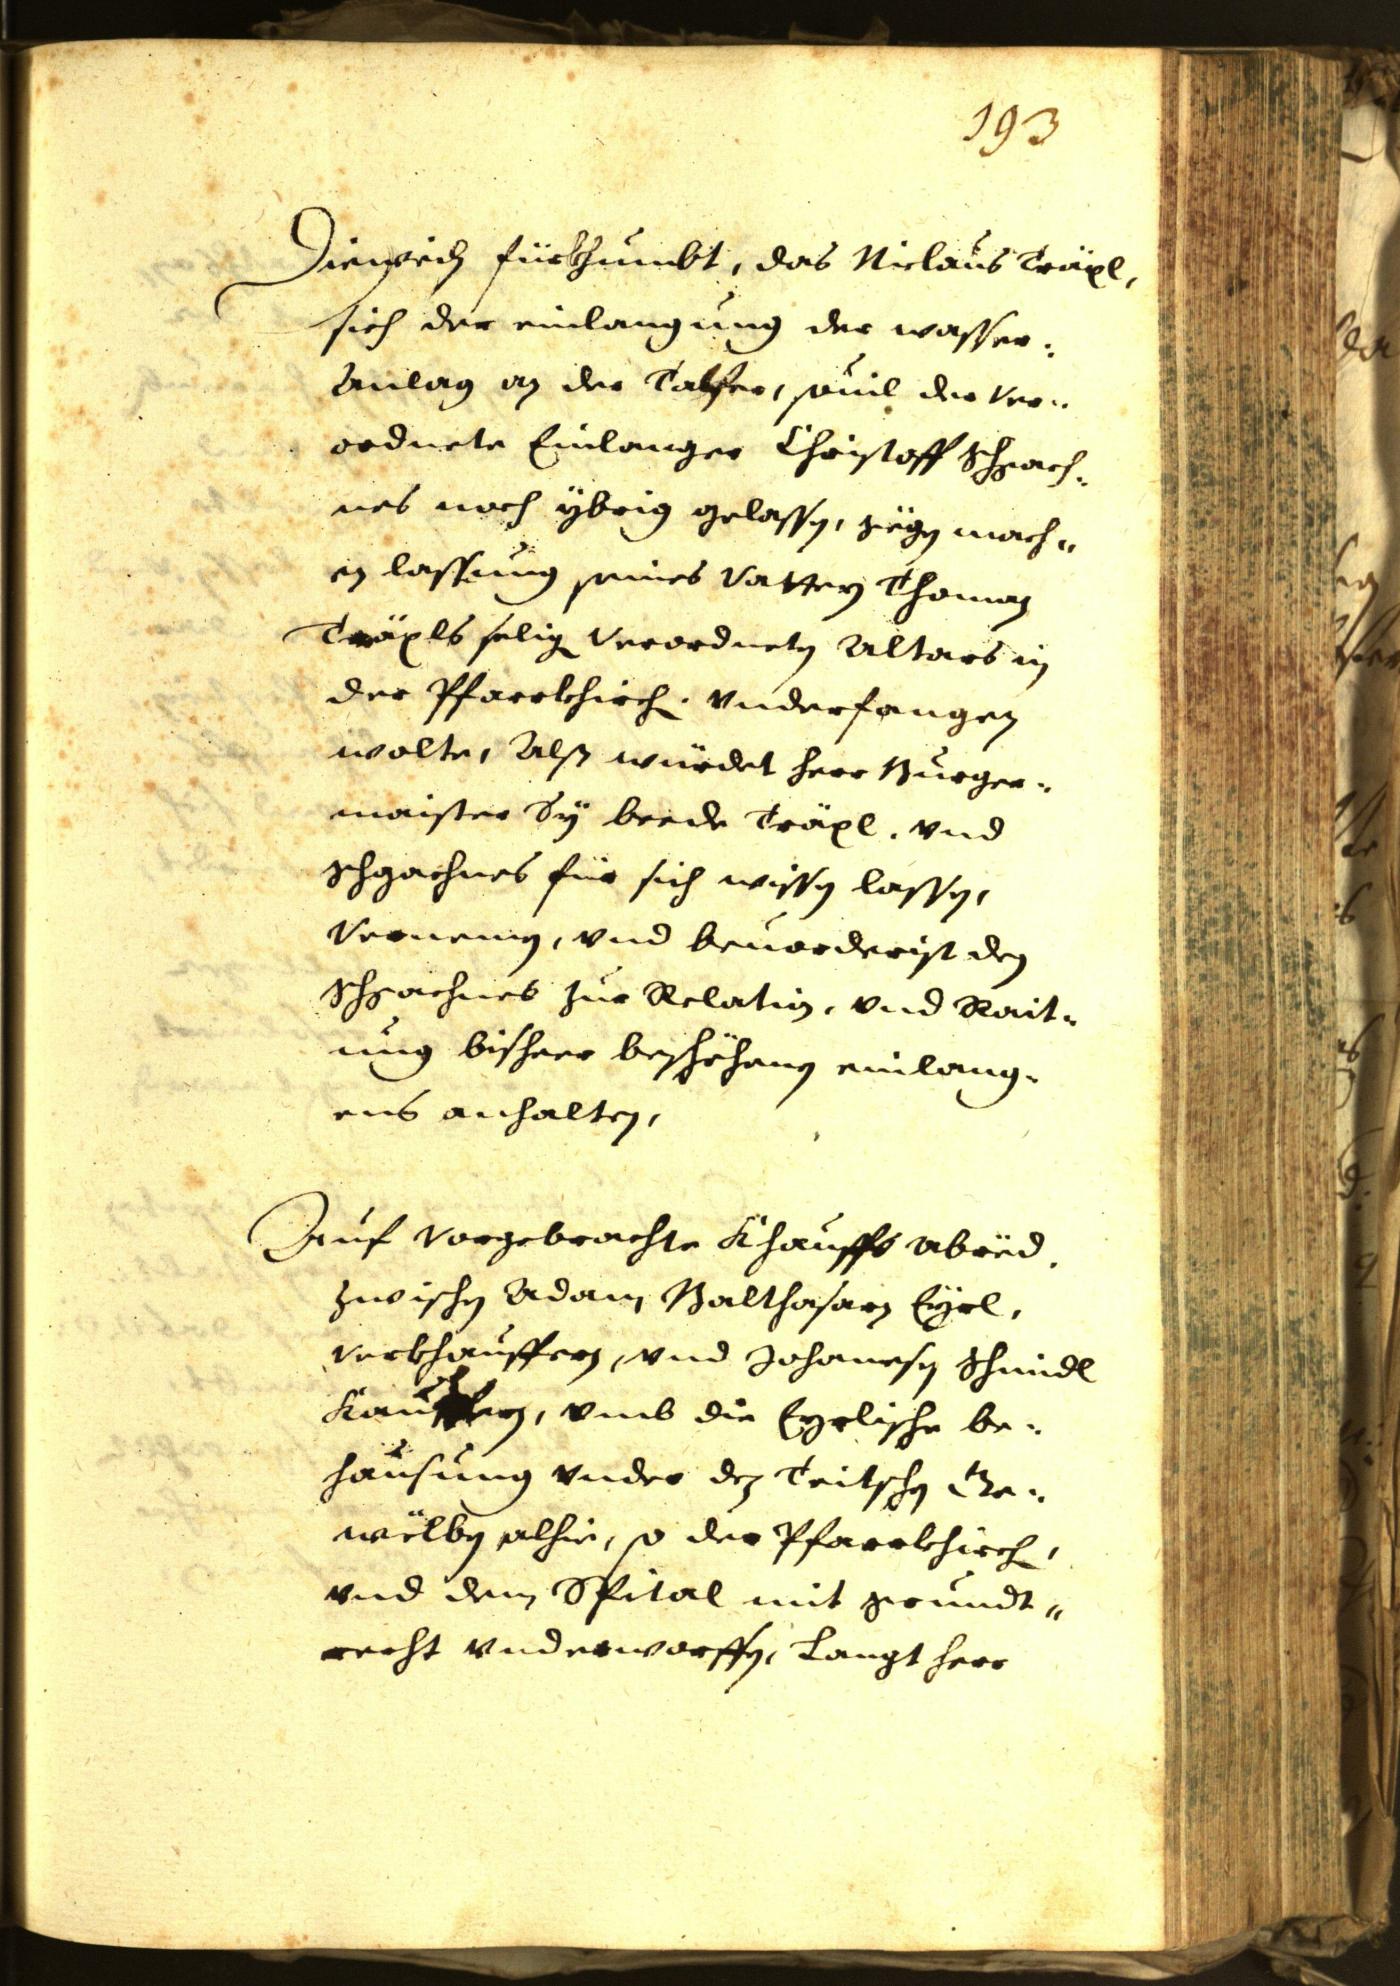 193
Dieweil fürkhumbt, das Niclaus Träxl,
sich der einlangung der wasser¬
Anlag an der Talfer, souil der Ver¬
ordnete Einlanger Christoff Schgach¬
nes noch ybrig gelassen, gegen mach¬
en lassung seines Vattern Thoman
Träxls selig Verordneten Altars in
der Pfarrkhirch. vnderfangen
wolte, Alß würdet herr Burger¬
maister Sy beede Träxl. vnd
Schgachnes für sich wissen lassen,
Vernemen, vnd beuorderist den
Schgachnes zur Relation, vnd Rait¬
ung bisheer beschehenen einlang¬
ens anhalten,
Auf vorgebrachte Khauffs abred.
zwischen Adam Balthasarn Eyrl,
verkhauffern, vnd Johanesen Schmidl
Kauffern, vmb die Eyrlische be¬
hausung vnder den Teitschen Ge¬
wëlben alhie, so der Pfarrkhirch,
vnd dem Spital mit grundt¬
recht vnderworffen, Langt herr